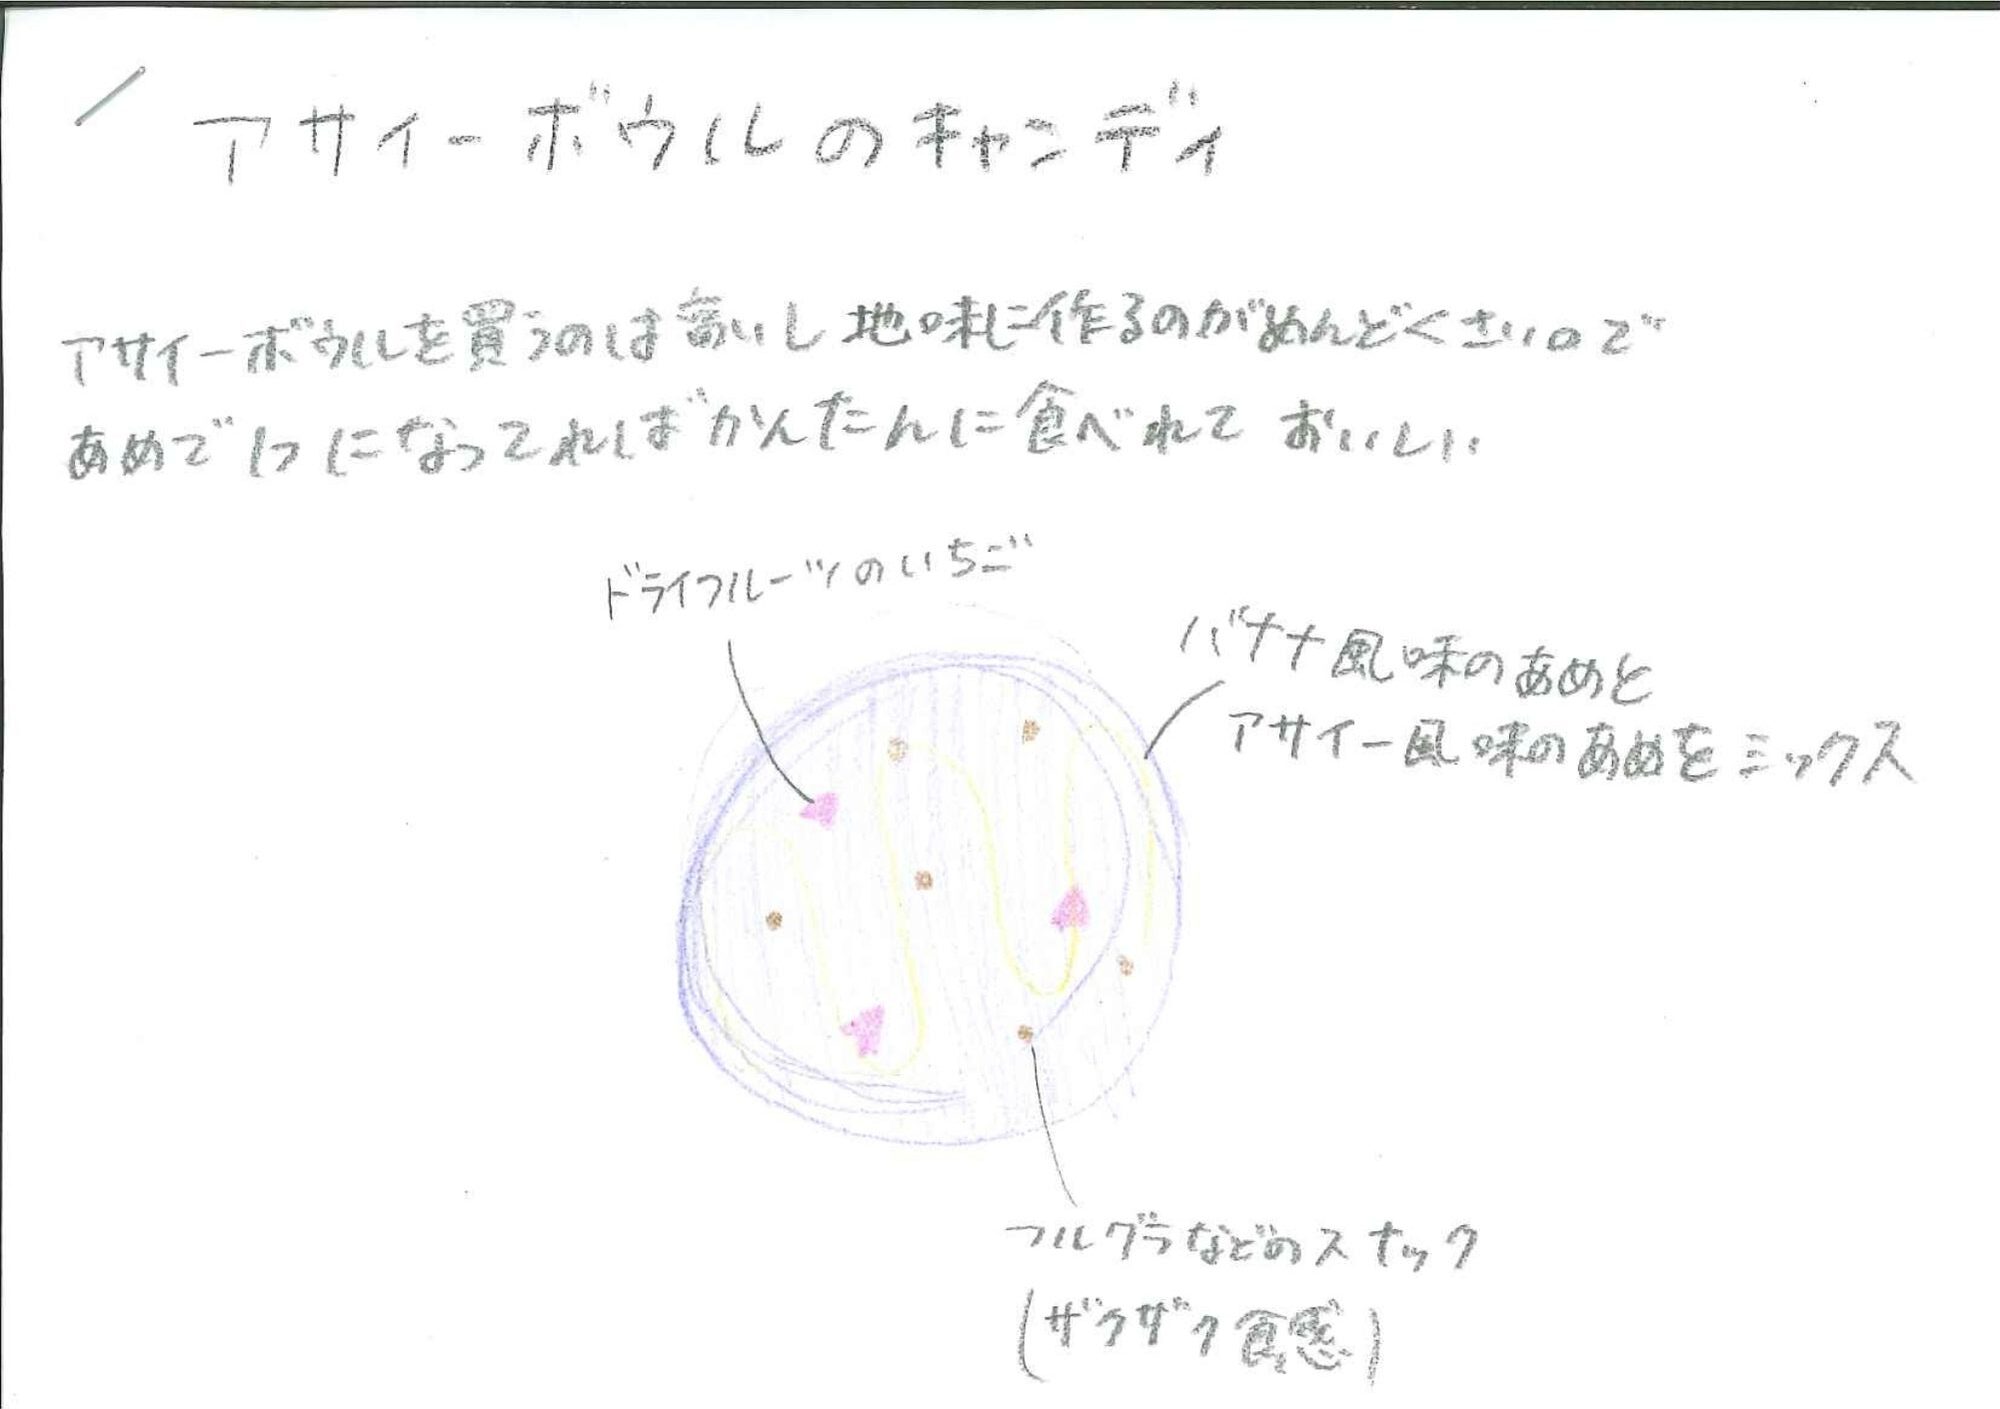 アサイーボウルのキャンディ
アサイーボウルを買うのは高いし地味に作るのがめんどくさいので
あめで1つになってればかんたんに食べれておいしい
ドライフルーツのいちご
バナナ風味のあめと
アサイー風味のあめをミックス
フルグラなどのスナック
(ザクザク食感)